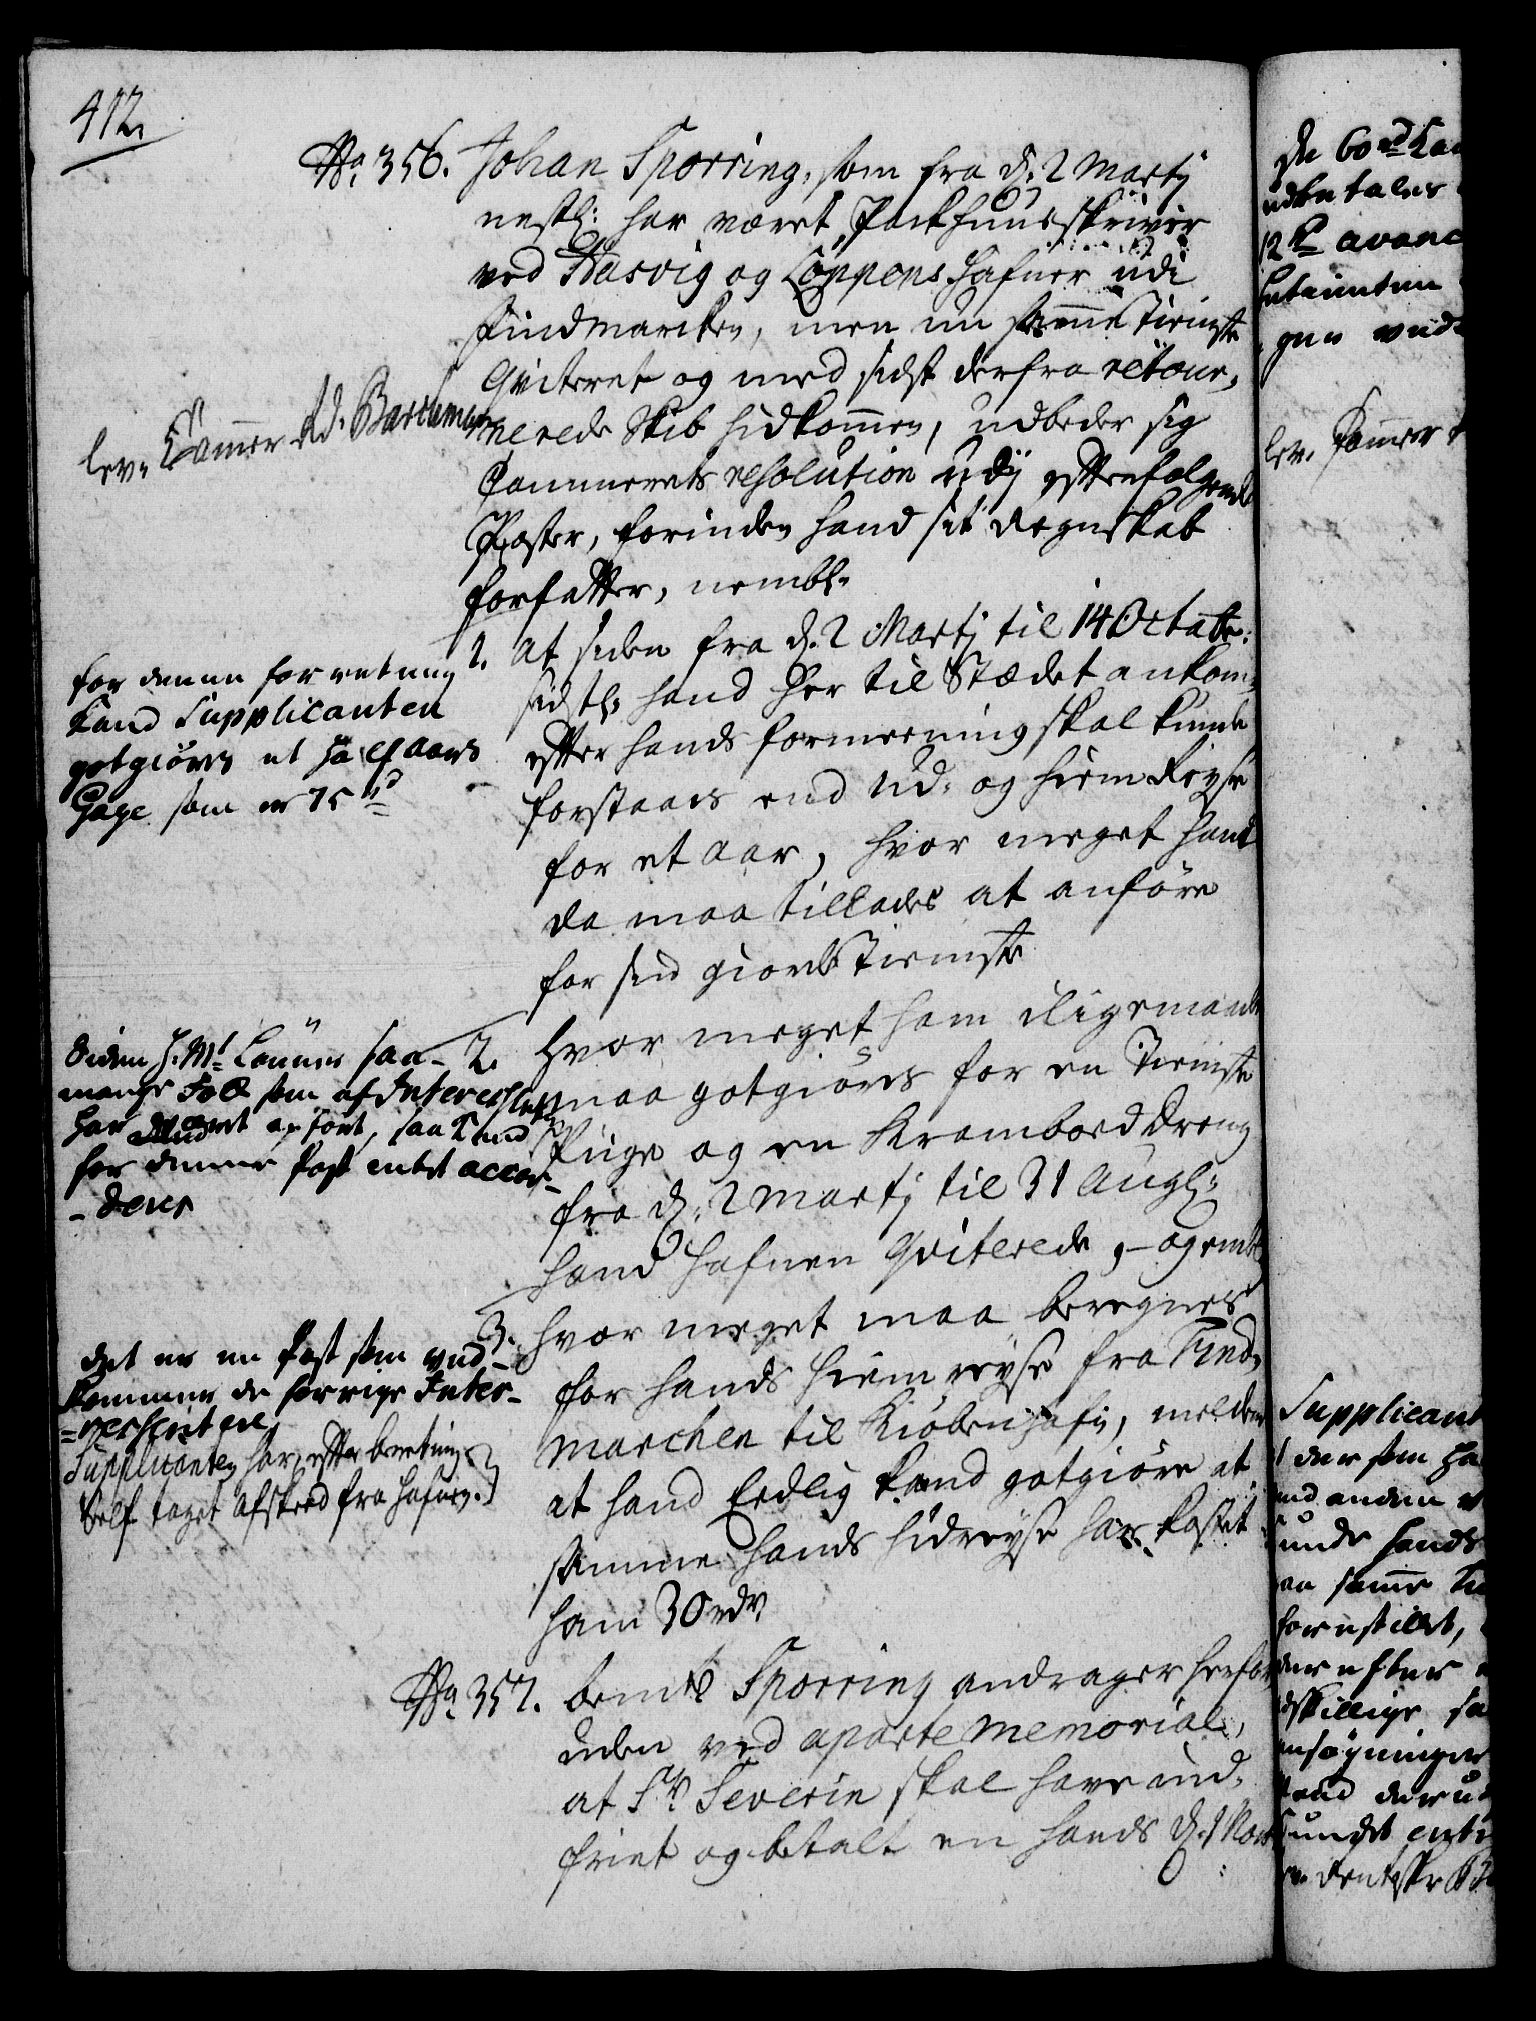 412.
No. 356. Johan Sporring, som fra d. 2 Martj
nestl: har været Packhuusskriver
ved Hasvig og Loppens Hafner udi
Findmarcken, men nu samme Tieniste
Qviteret og med sidst derfra retour-
nerede Skib hidkommen, udbeder sig
Cammerets resolution udj efterfølgende
Poster, forinden hand sit Regnskab
forfatter, nembl.
lev. Cammer Rd. Barthuman
1. at siden fra d. 2 Martj til 14 Octobr:
sidstl: hand her til Stædet ankom,
efter hands formeening skal kunde
forstaaes end Ud- og hiem Reyse
for et aar, hvor meget hand
da maa tillades at anføre
for sin giorde Tieniste
for denne forretning
kand Supplicanten
gotgiøres et half aars
Gage som er 75 rd
2. hvor meget ham iligemaade
maa gotgiøres for en Tieniste
Pige og en Krambod dreng
fra d. 2 Martj til 31 Augl:
hand hafnen Qviterede, og endl.
Siden H. Mt Lønner saa-
mange Folk som af Interessentere
har været anført, saa kand
for denne Post intet accor-
deres
3. hvor meget maa beregnes
for hands hiem reyse fra Find-
marchen til Kiøbenhafn, melder
at hand Eedlig kand gotgiøre at
samme hands hidreyse har kostet
ham 30 rdr.
det er en Post som ved-
kommer de forrige Inter-
ressentere
Supplicanten har efter beretning
Self taget afskeed fra hafnen.
No. 357. bemte Sporring andrager herfor-
uden ved aparte Memorial,
at Sr. Severin skal have ind-
friet og betalt en hands d. 1 Nov
de 60 rd
udbetales
12 ß avanc
lev. Cammer
Supplicant
der som ha
und anden
unde hands
aa samme
forestillet,
der efter
skillige sa
nsøgninger